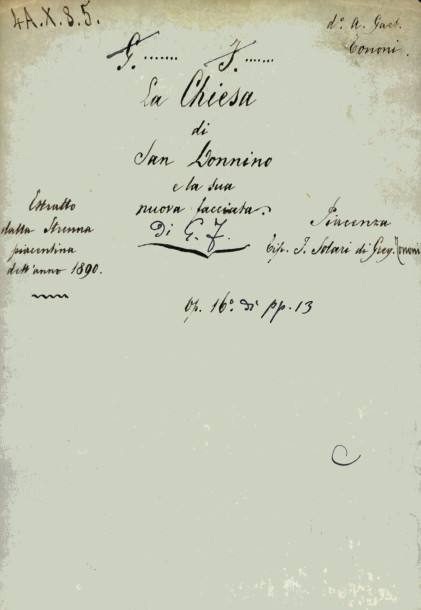 4A.X.8.5.
d.º A. Gaet.
Tononi.
G....... F......
La Chiesa
di
San Donnino
e la sua
nuova facciata.
Di G. F.
Estratto
dalla Strenna
piacentina
dell'anno 1890.
Piacenza
Tip. F. Solari di Greg. Tononi
Op. 16º di pp. 13
C